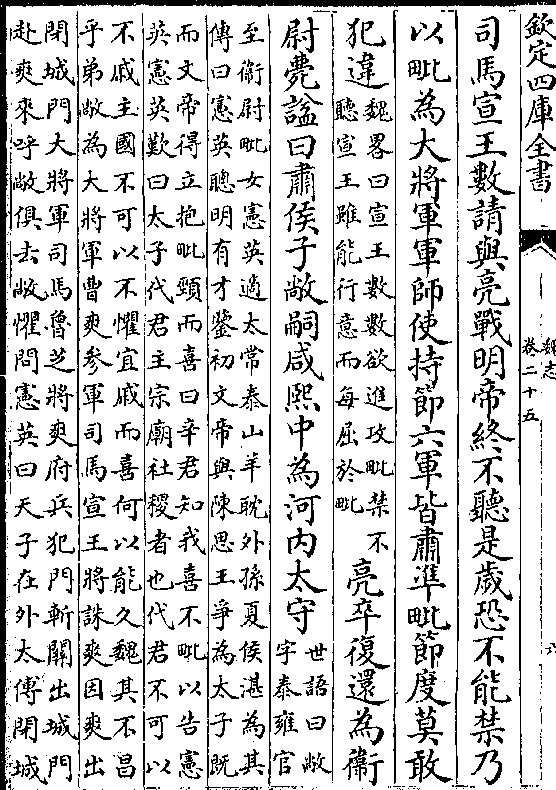 欽定四庫全書
魏志
卷二十五
六
司馬宣王數請與亮戰明帝終不聽是歲恐不能禁乃
以毗為大將軍軍師使持節六軍皆肅準毗節度莫敢
犯違
魏畧曰宣王數數欲進攻毗禁不
聽宣王雖能行意而每屈於毗
亮卒復還為衞
尉薨諡曰肅侯子敞嗣咸熙中為河内太守
世語曰敞
字泰雍官
至衞尉毗女憲英適太常泰山羊耽外孫夏侯湛為其
傳曰憲英聰明有才鑒初文帝與陳思王爭為太子既
而文帝得立抱毗頸而喜曰辛君知我喜不毗以告憲
英憲英歎曰太子代君主宗廟社稷者也代君不可以
不戚主國不可以不懼宜戚而喜何以能久魏其不昌
乎弟敞為大將軍曹爽參軍司馬宣王將誅爽因爽出
閉城門大將軍司馬魯芝將爽府兵犯門斬關出城門
赴爽來呼敞俱去敞懼問憲英曰天子在外太傅閉城